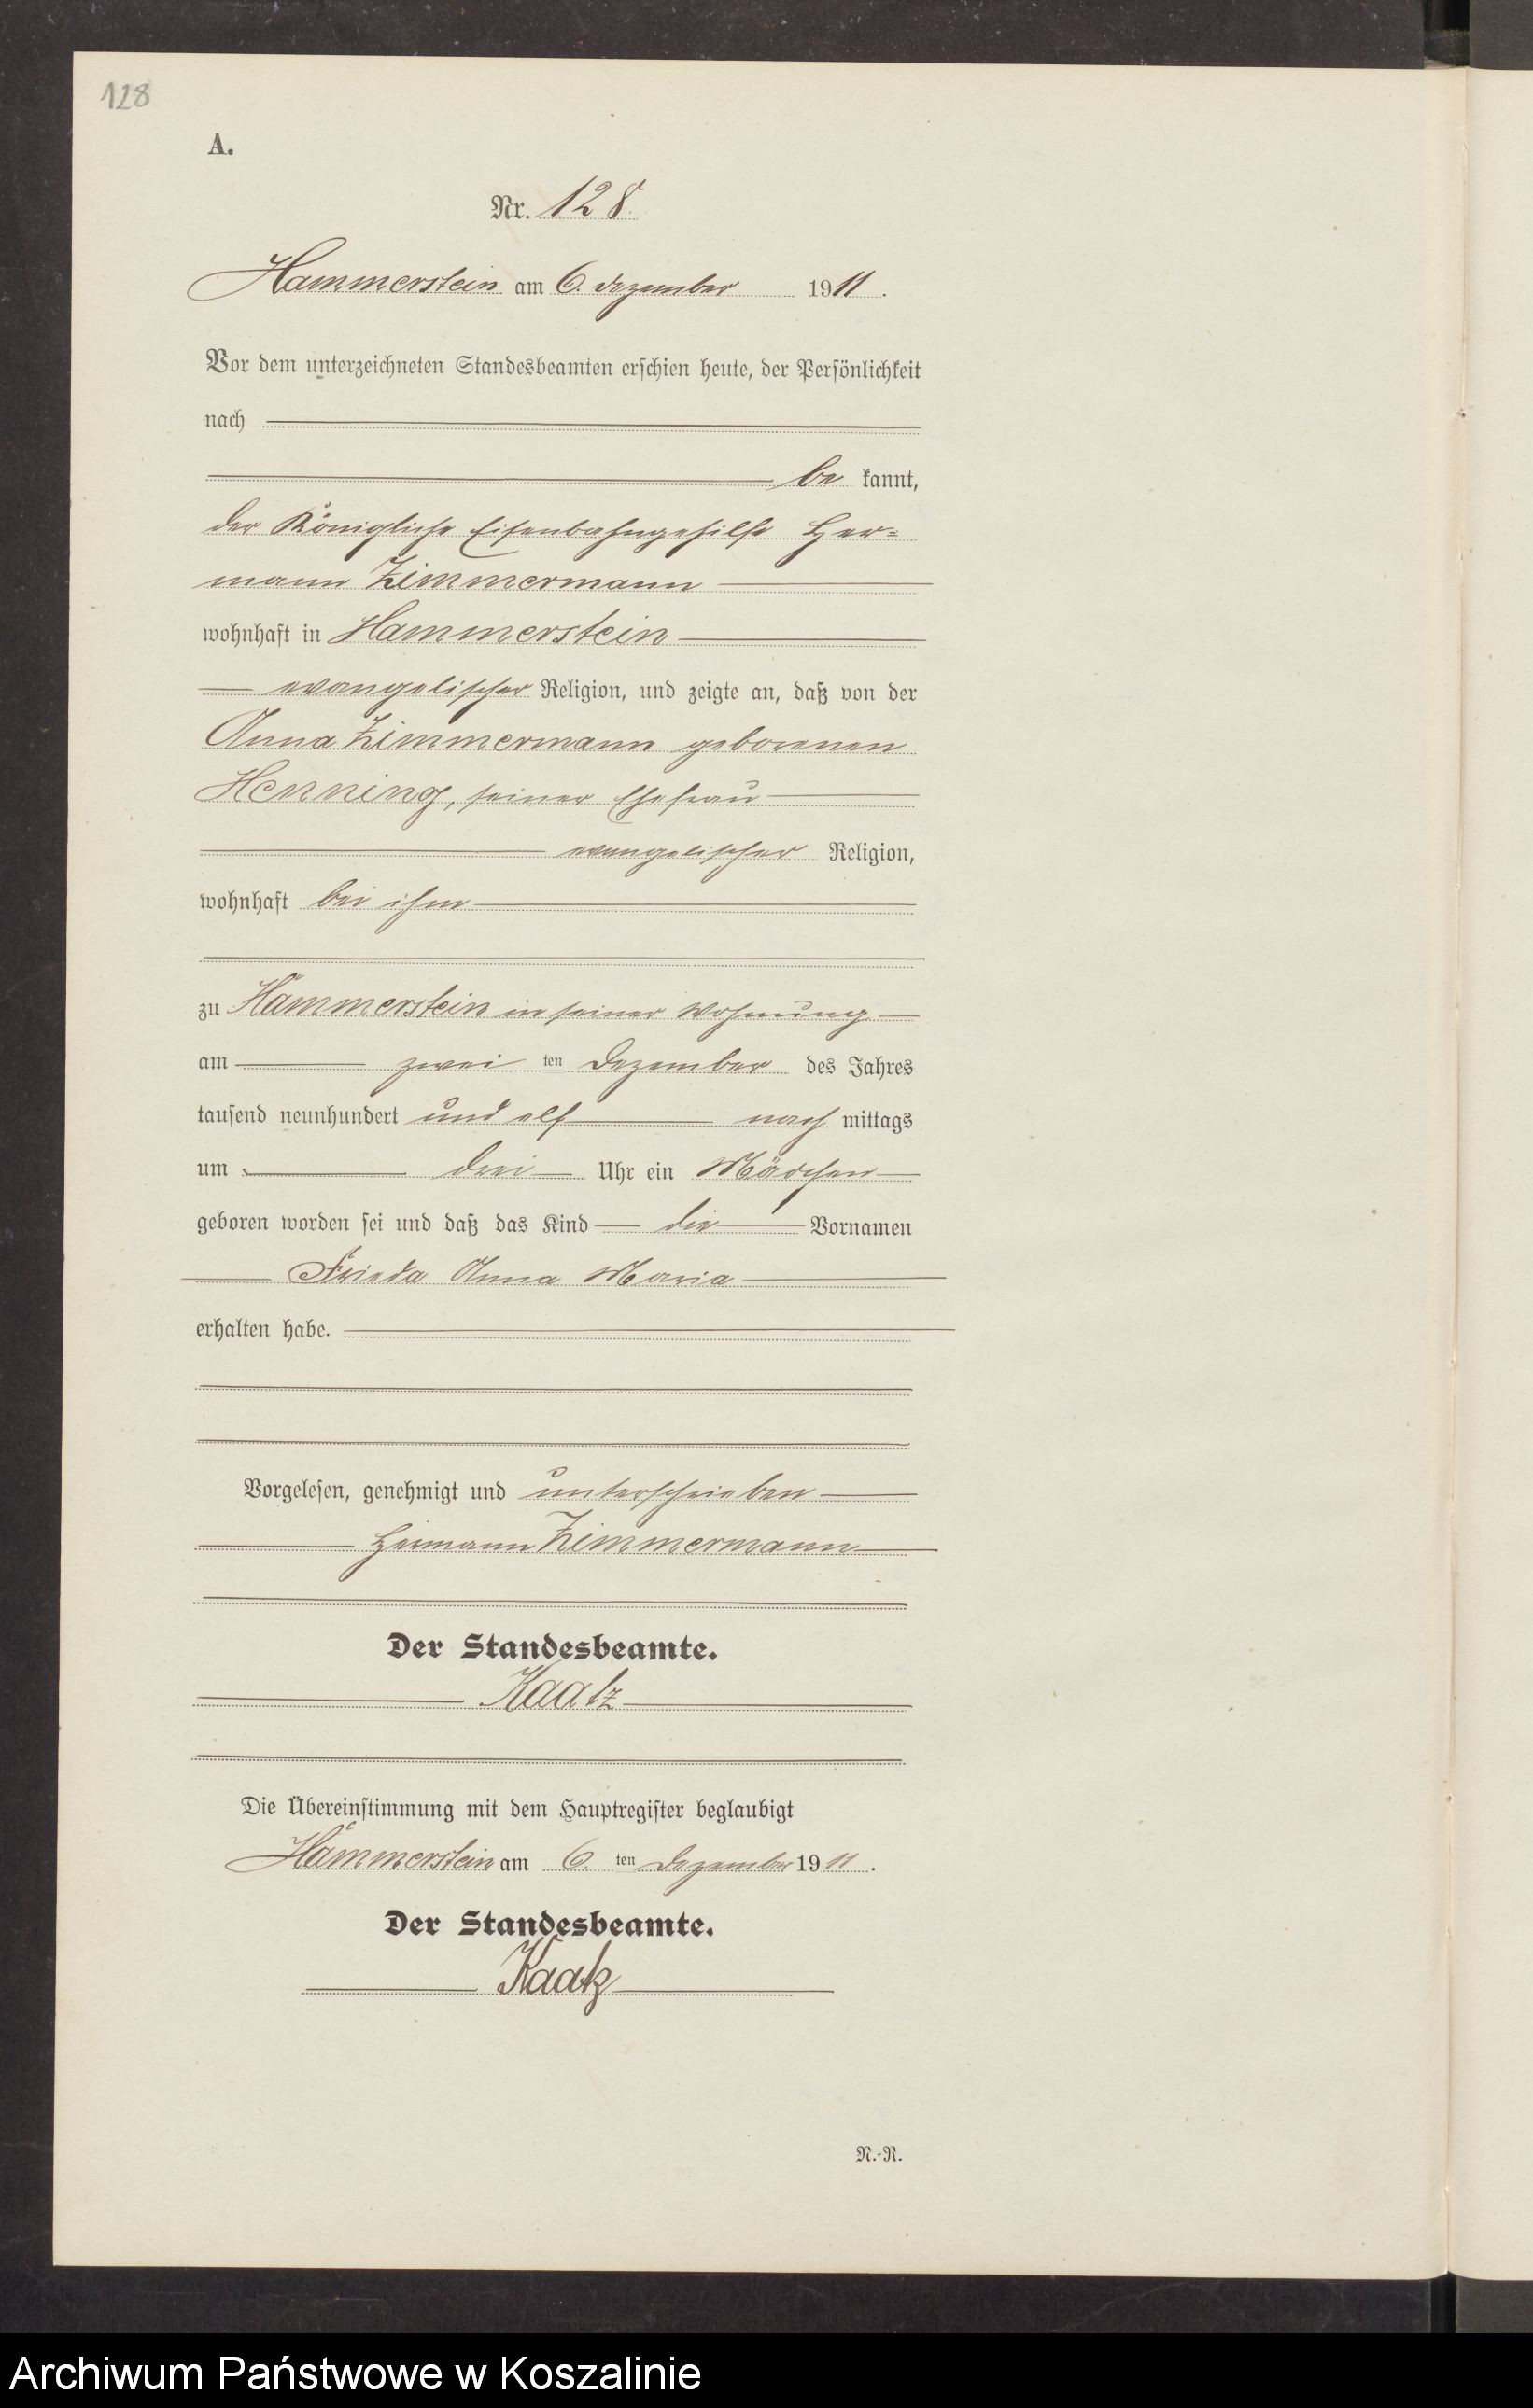 128
A.
Nr. 128.
Hammerstein am 6. Dezember 1911.
Vor dem unterzeichneten Standesbeamten erschien heute, der Persönlichkeit
nach
be kannt,
der Königliche Eisenbahngehilfe Her=
mann Zimmermann
wohnhaft in Hammerstein
evangelischer Religion, und zeigte an, daß von der
Anna Zimmermann geborenen
Henning, seiner Ehefrau
evangelischer Religion,
wohnhaft bei ihm
zu Hammerstein in seiner Wohnung
am zwei ten Dezember des Jahres
tausend neunhundert und elf nach mittags
um drei Uhr ein Mädchen
geboren worden sei und daß das Kind die Vornamen
Frieda Anna Maria
erhalten habe.
Vorgelesen, genehmigt und unterschrieben
Hermann Zimmermann
Der Standesbeamte.
Kaatz
Die Übereinstimmung mit dem Hauptregister beglaubigt
Hammerstein am 6. ten Dezember 1911.
Der Standesbeamte.
Kaatz
N.-R.
Archiwum Państwowe w Koszalinie